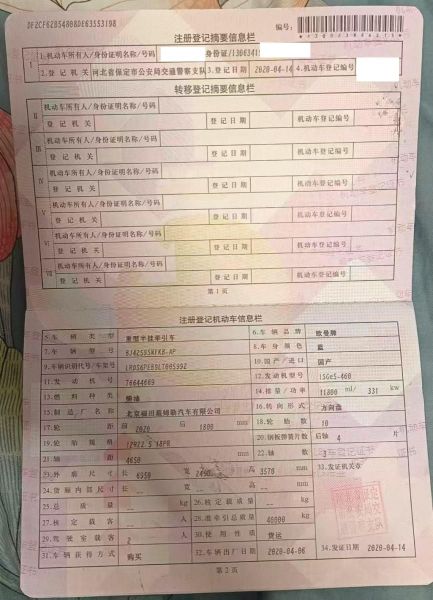 编号:
注册登记摘要信息栏
I 1.机动车所有人/身份证明名称/号码 身份证/
2.登记机关 河北省保定市公安局交通警察支队 3.登记日期 2020-04-14 4.机动车登记编号
转移登记摘要信息栏
II 机动车所有人/身份证明名称/号码
登记机关 登记日期 机动车登记编号
III 机动车所有人/身份证明名称/号码
登记机关 登记日期 机动车登记编号
IV 机动车所有人/身份证明名称/号码
登记机关 登记日期 机动车登记编号
V 机动车所有人/身份证明名称/号码
登记机关 登记日期 机动车登记编号
VI 机动车所有人/身份证明名称/号码
登记机关 登记日期 机动车登记编号
VII 机动车所有人/身份证明名称/号码
登记机关 登记日期 机动车登记编号
第1页
注册登记机动车信息栏
5.车辆类型 重型半挂牵引车 6.车辆品牌 欧曼牌
7.车辆型号 8.车身颜色 蓝
9.车辆识别代号/车架号 10.国产/进口 国产
11.发动机号 76644669 12.发动机型号
13.燃料种类 柴油 14.排量/功率 11800 ml/ 331 kw
15.制造厂名称 北京福田戴姆勒汽车有限公司 16.转向形式 方向盘
17.轮距 前 2020 后 1800 mm 18.轮胎数 10
19.轮胎规格 12R22.5 18PR 20.钢板弹簧片数 后轴 4 片
21.轴距 4650 mm 22.轴数 3
23.外廓尺寸 长 宽 高 3570 mm 33.发证机关章
24.货厢内部尺寸 长 -- 宽 -- 高 -- mm
25.总质量 -- kg 26.核定载质量 -- kg
27.核定载客 -- 人 28.准牵引总质量 40000 kg
29.驾驶室载客 2 人 30.使用性质 货运
31.车辆获得方式 购买 32.车辆出厂日期 2020-04-06 34.发证日期 2020-04-14
第2页